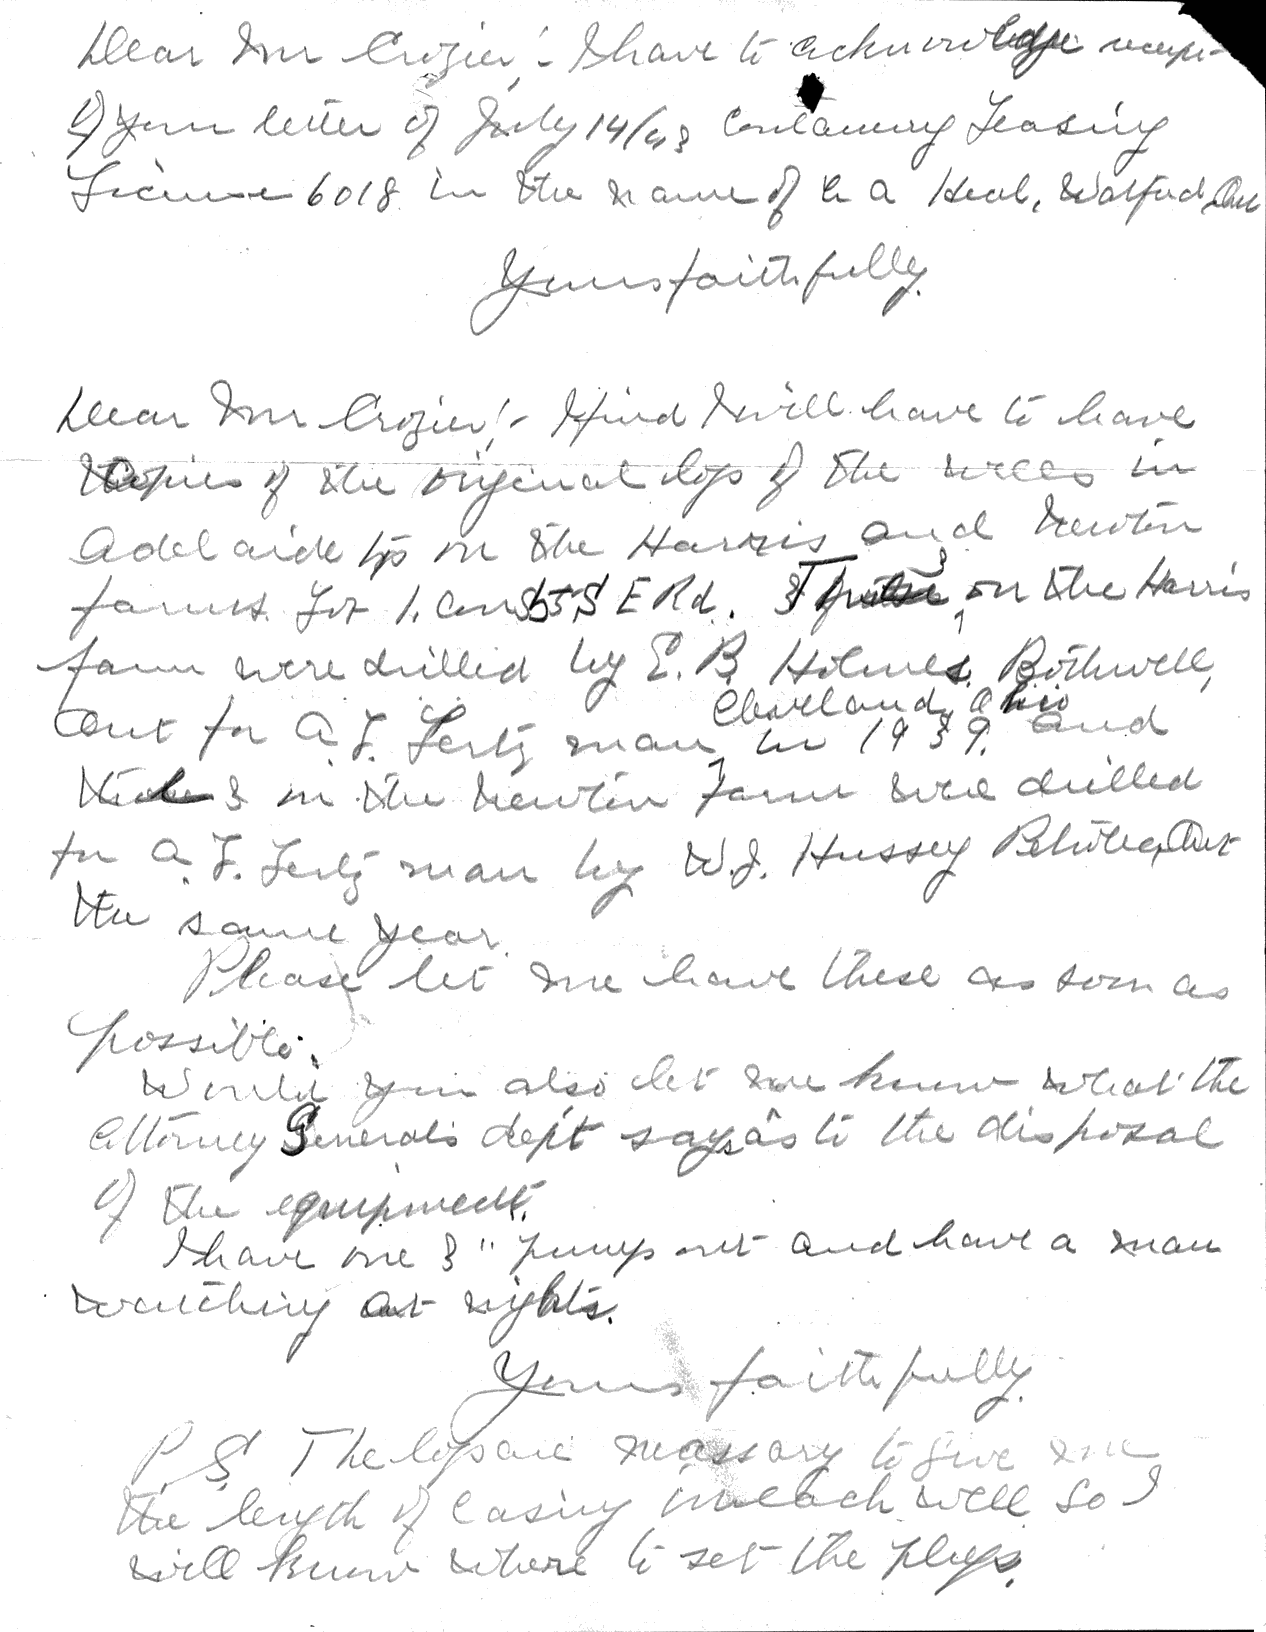 Dear Mr Crozier:- I have to acknowledge receipt
of your letter of July 14/43 containing Leasing
License 6018 in the name of C A Heal, Walford, Ont
Yours faithfully.
Dear Mr Crozier:- I find I will have to have
copies of the original logs of the wells in
Adelaide tp on the Harris and Newton
farms. Lot 1. Con S E Rd. 3 on the Harris
farm were drilled by E. B. Holmes. Bothwell,
Ont for A. L. man, Cleveland, Ohio in 1939. and
the 3 on the Newton farm were drilled
for A. L. man by W. J. Hussey Petrolia, Ont
the same year.
Please let me have these as soon as
possible.
Would you also let me know what the
Attorney Generals dep't says as to the disposal
of the equipment.
I have one 3" pump out and have a man
watching at nights.
Yours faithfully.
P. S. The logs are necessary to give me
the length of casing in each well so I
will know where to set the plugs.